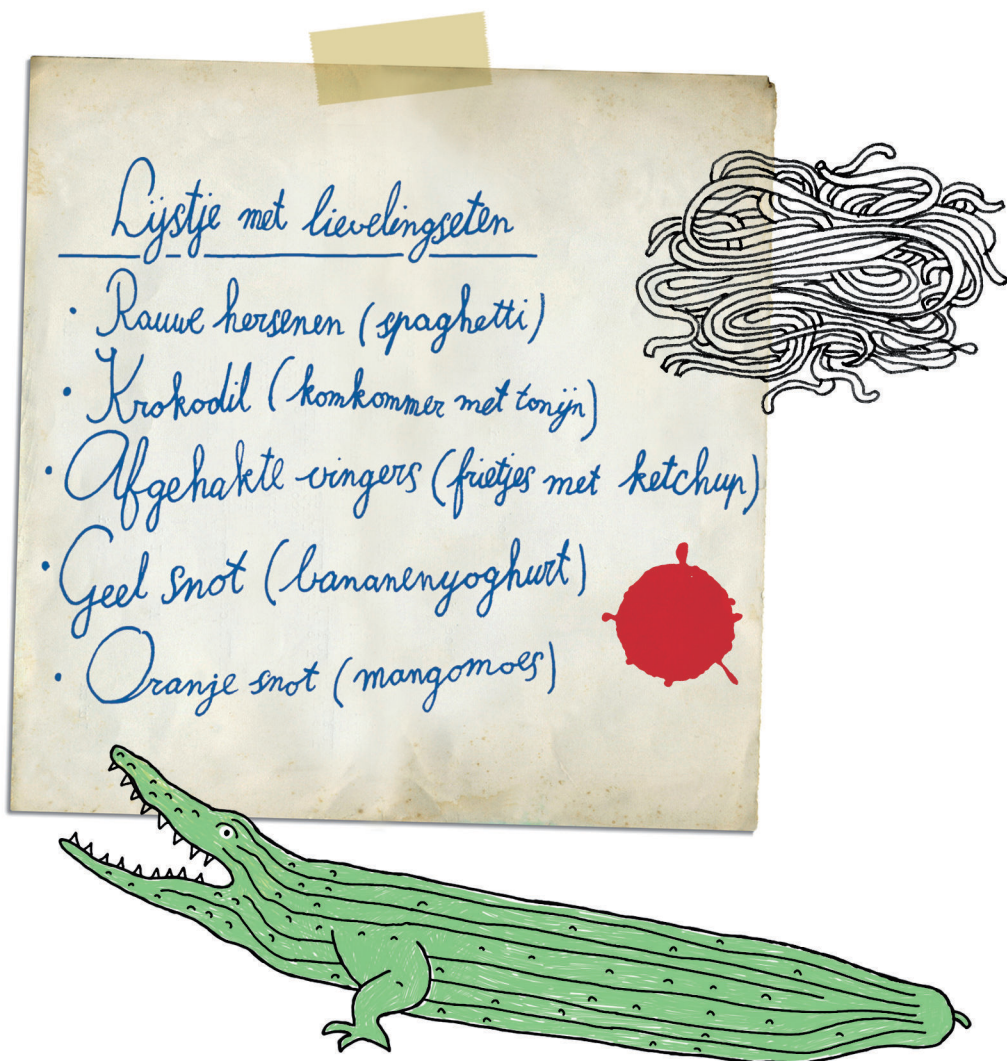 Lijstje met lievelingseten
• Rauwe hersenen (spaghetti)
• Krokodil (komkommer met tonijn)
• Afgehakte vingers (frietjes met ketchup)
• Geel snot (bananenyoghurt)
• Oranje snot (mangomoes)